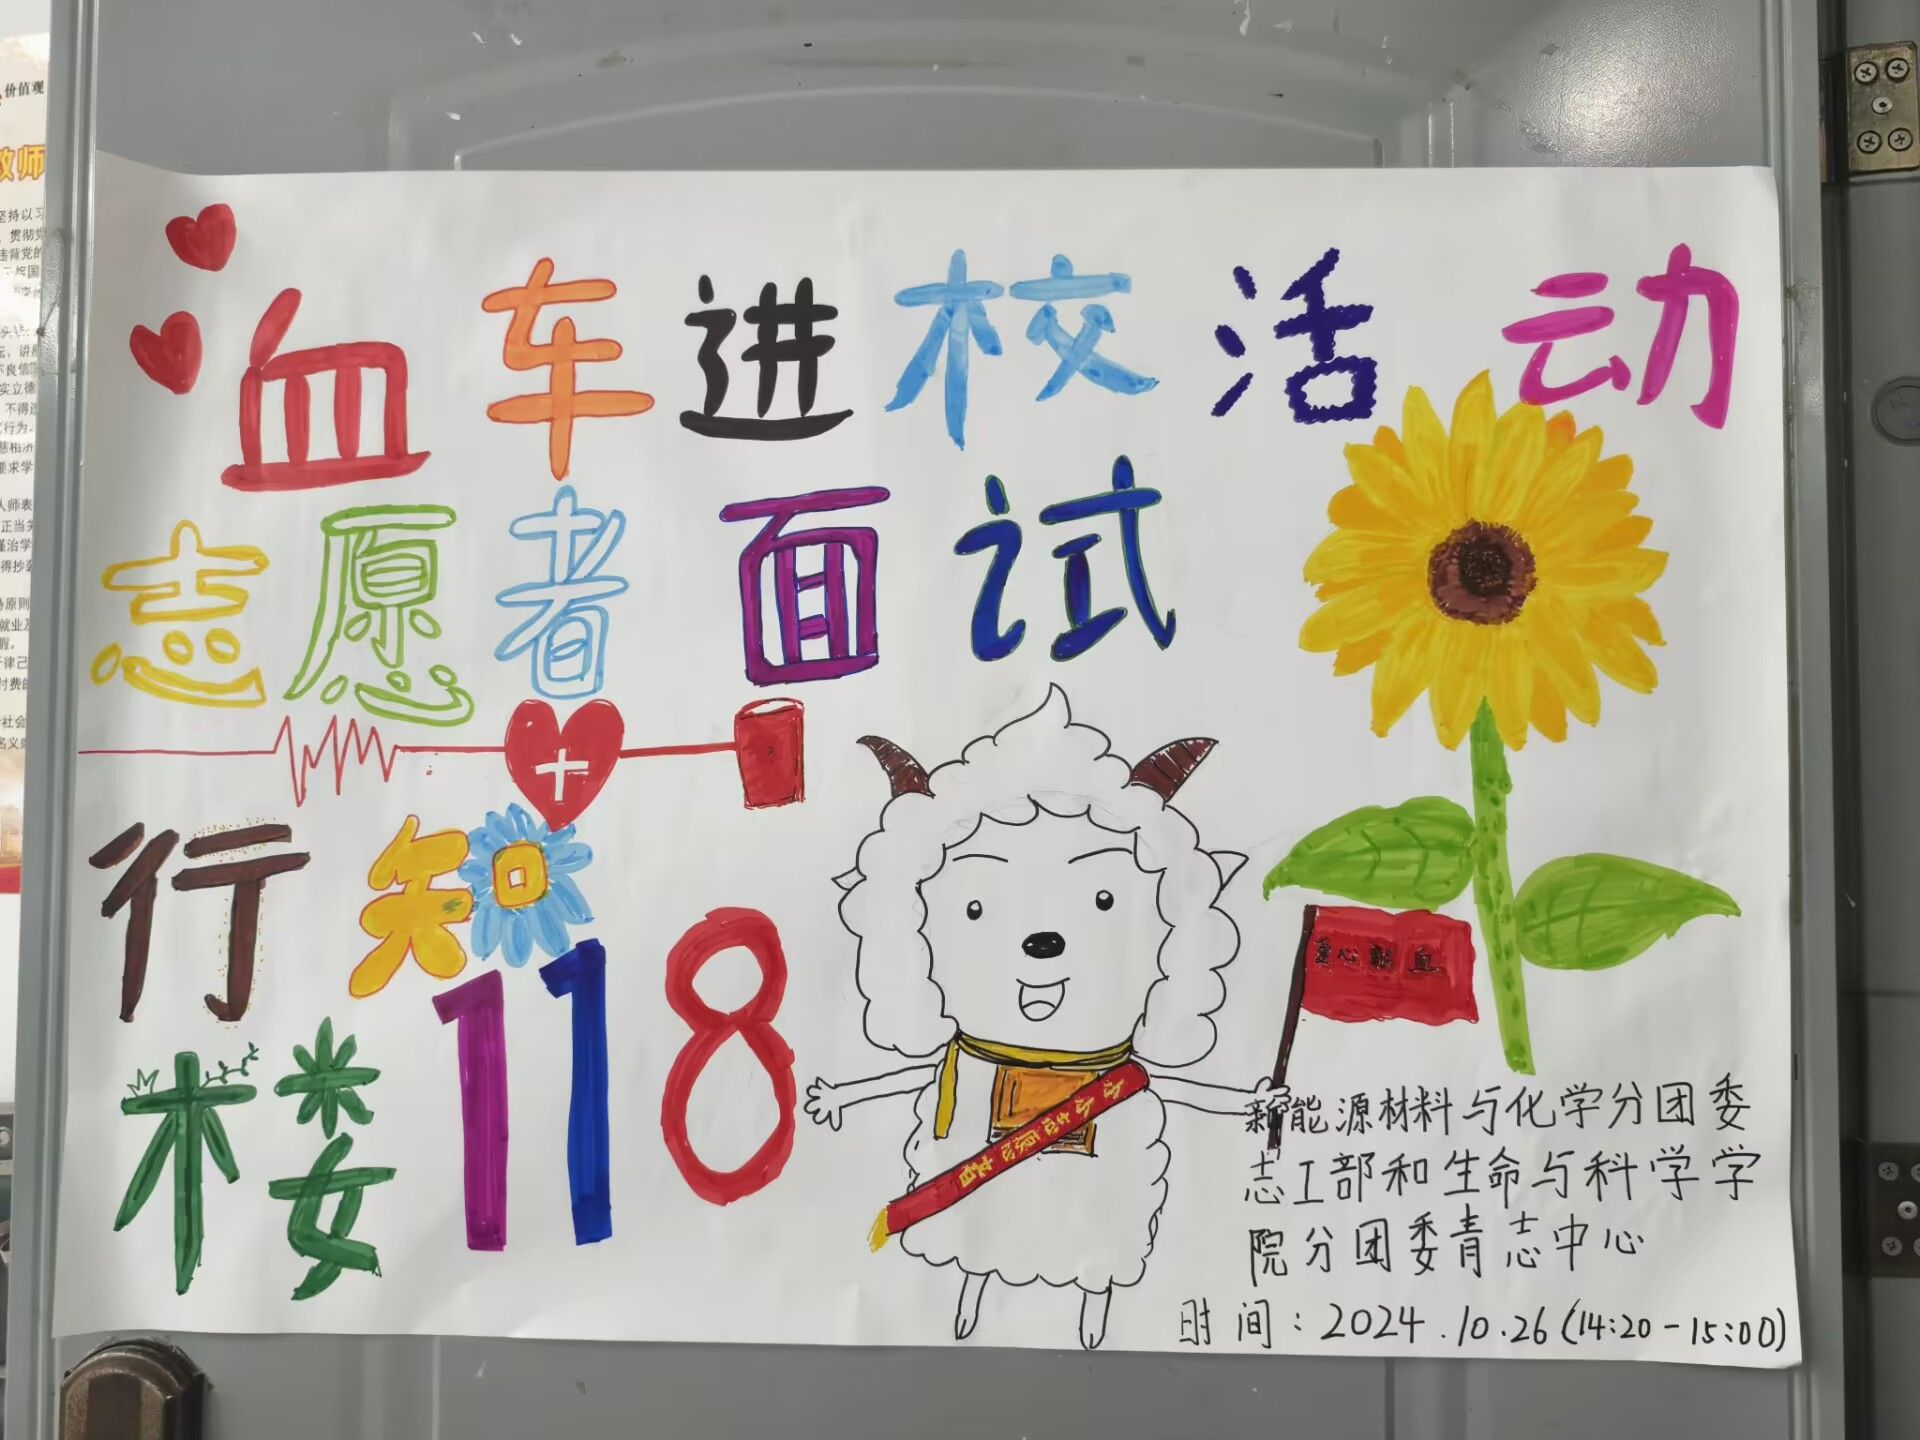 血车进校活动
志愿者面试
行知
楼118
爱心献血
新能源材料与化学分团委
志工部和生命与科学学
院分团委青志中心
时间：2024.10.26(14:20-15:00)
价值观
教师